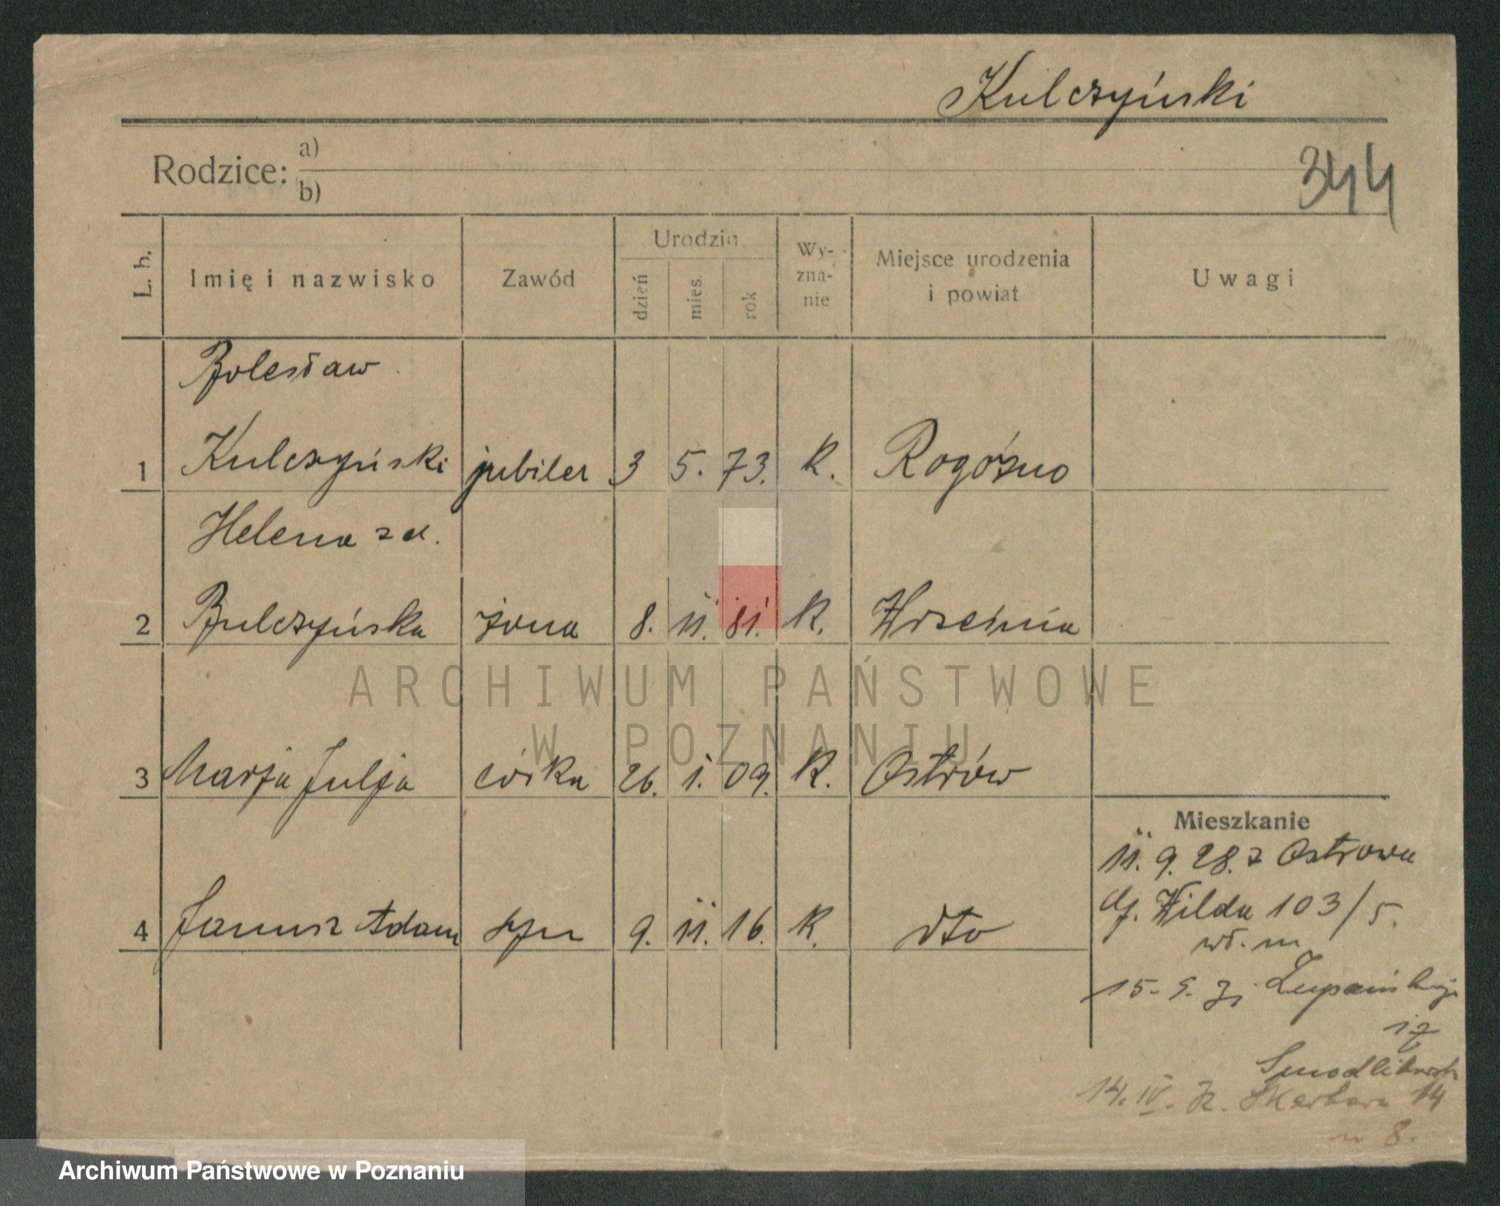 Kulczyński
344
Rodzice: a)
b)
L. b. Imię i nazwisko Zawód Urodzin dzień mies. rok Wy-zna-nie Miejsce urodzenia i powiat Uwagi
Bolesław
1 Kulczyński jubiler 3 5. 73. k. Rogóżno
Helena z d.
2 Bulczyńska żona 8. 11. 81. k. Września
ARCHIWUM PAŃSTWOWE
W POZNANIU
3 Marja Julja córka 26. 1. 09. k. Ostrów
4 Janusz Adam syn 9. 11. 16. k. dto
Mieszkanie
11. 9. 28. z Ostrowa
G. Wilda 103/5.
wł. m.
15. 9. Żupańskiego
Smodlikowska
14. IV. Skarbora 14
m 8.
Archiwum Państwowe w Poznaniu